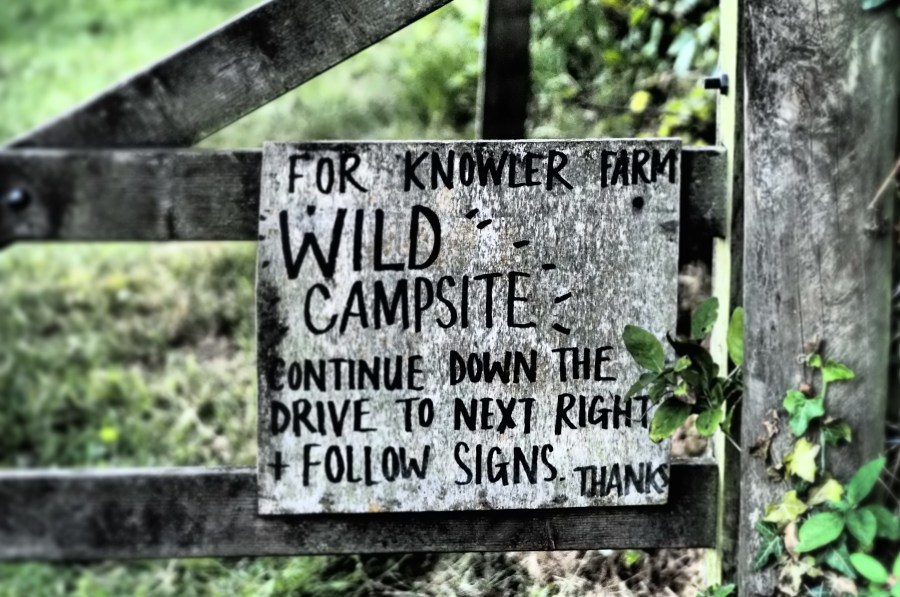 FOR KNOWLER FARM
WILD
CAMPSITE
CONTINUE DOWN THE
DRIVE TO NEXT RIGHT
+ FOLLOW SIGNS. THANKS